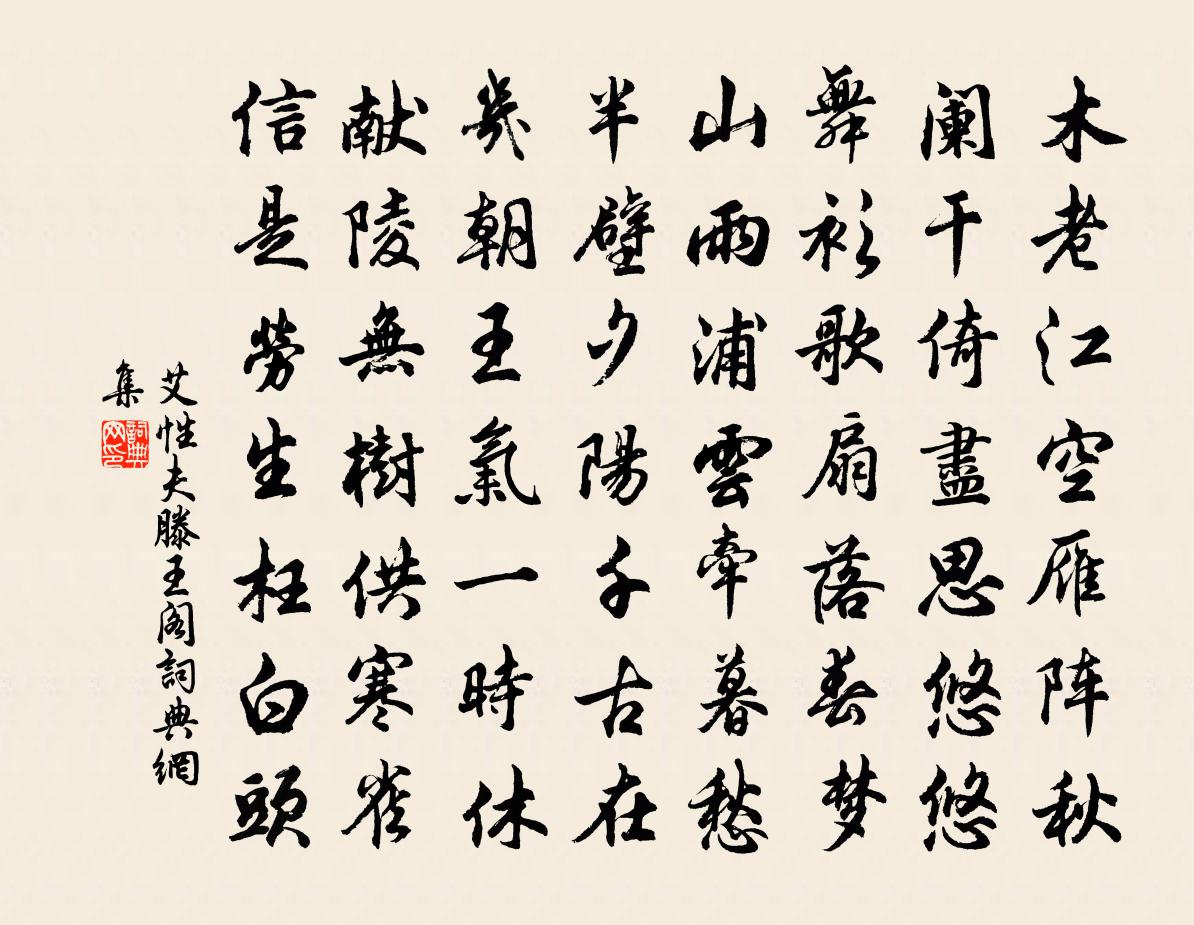 木老江空雁阵秋
阑干倚盡思悠悠
舞衫歌扇落春梦
山雨浦雲牽暮愁
半壁夕陽千古在
幾朝王氣一時休
献陵無樹供寒雀
信是勞生枉白頭
艾性夫滕王阁詞典網
集
詞典
网印